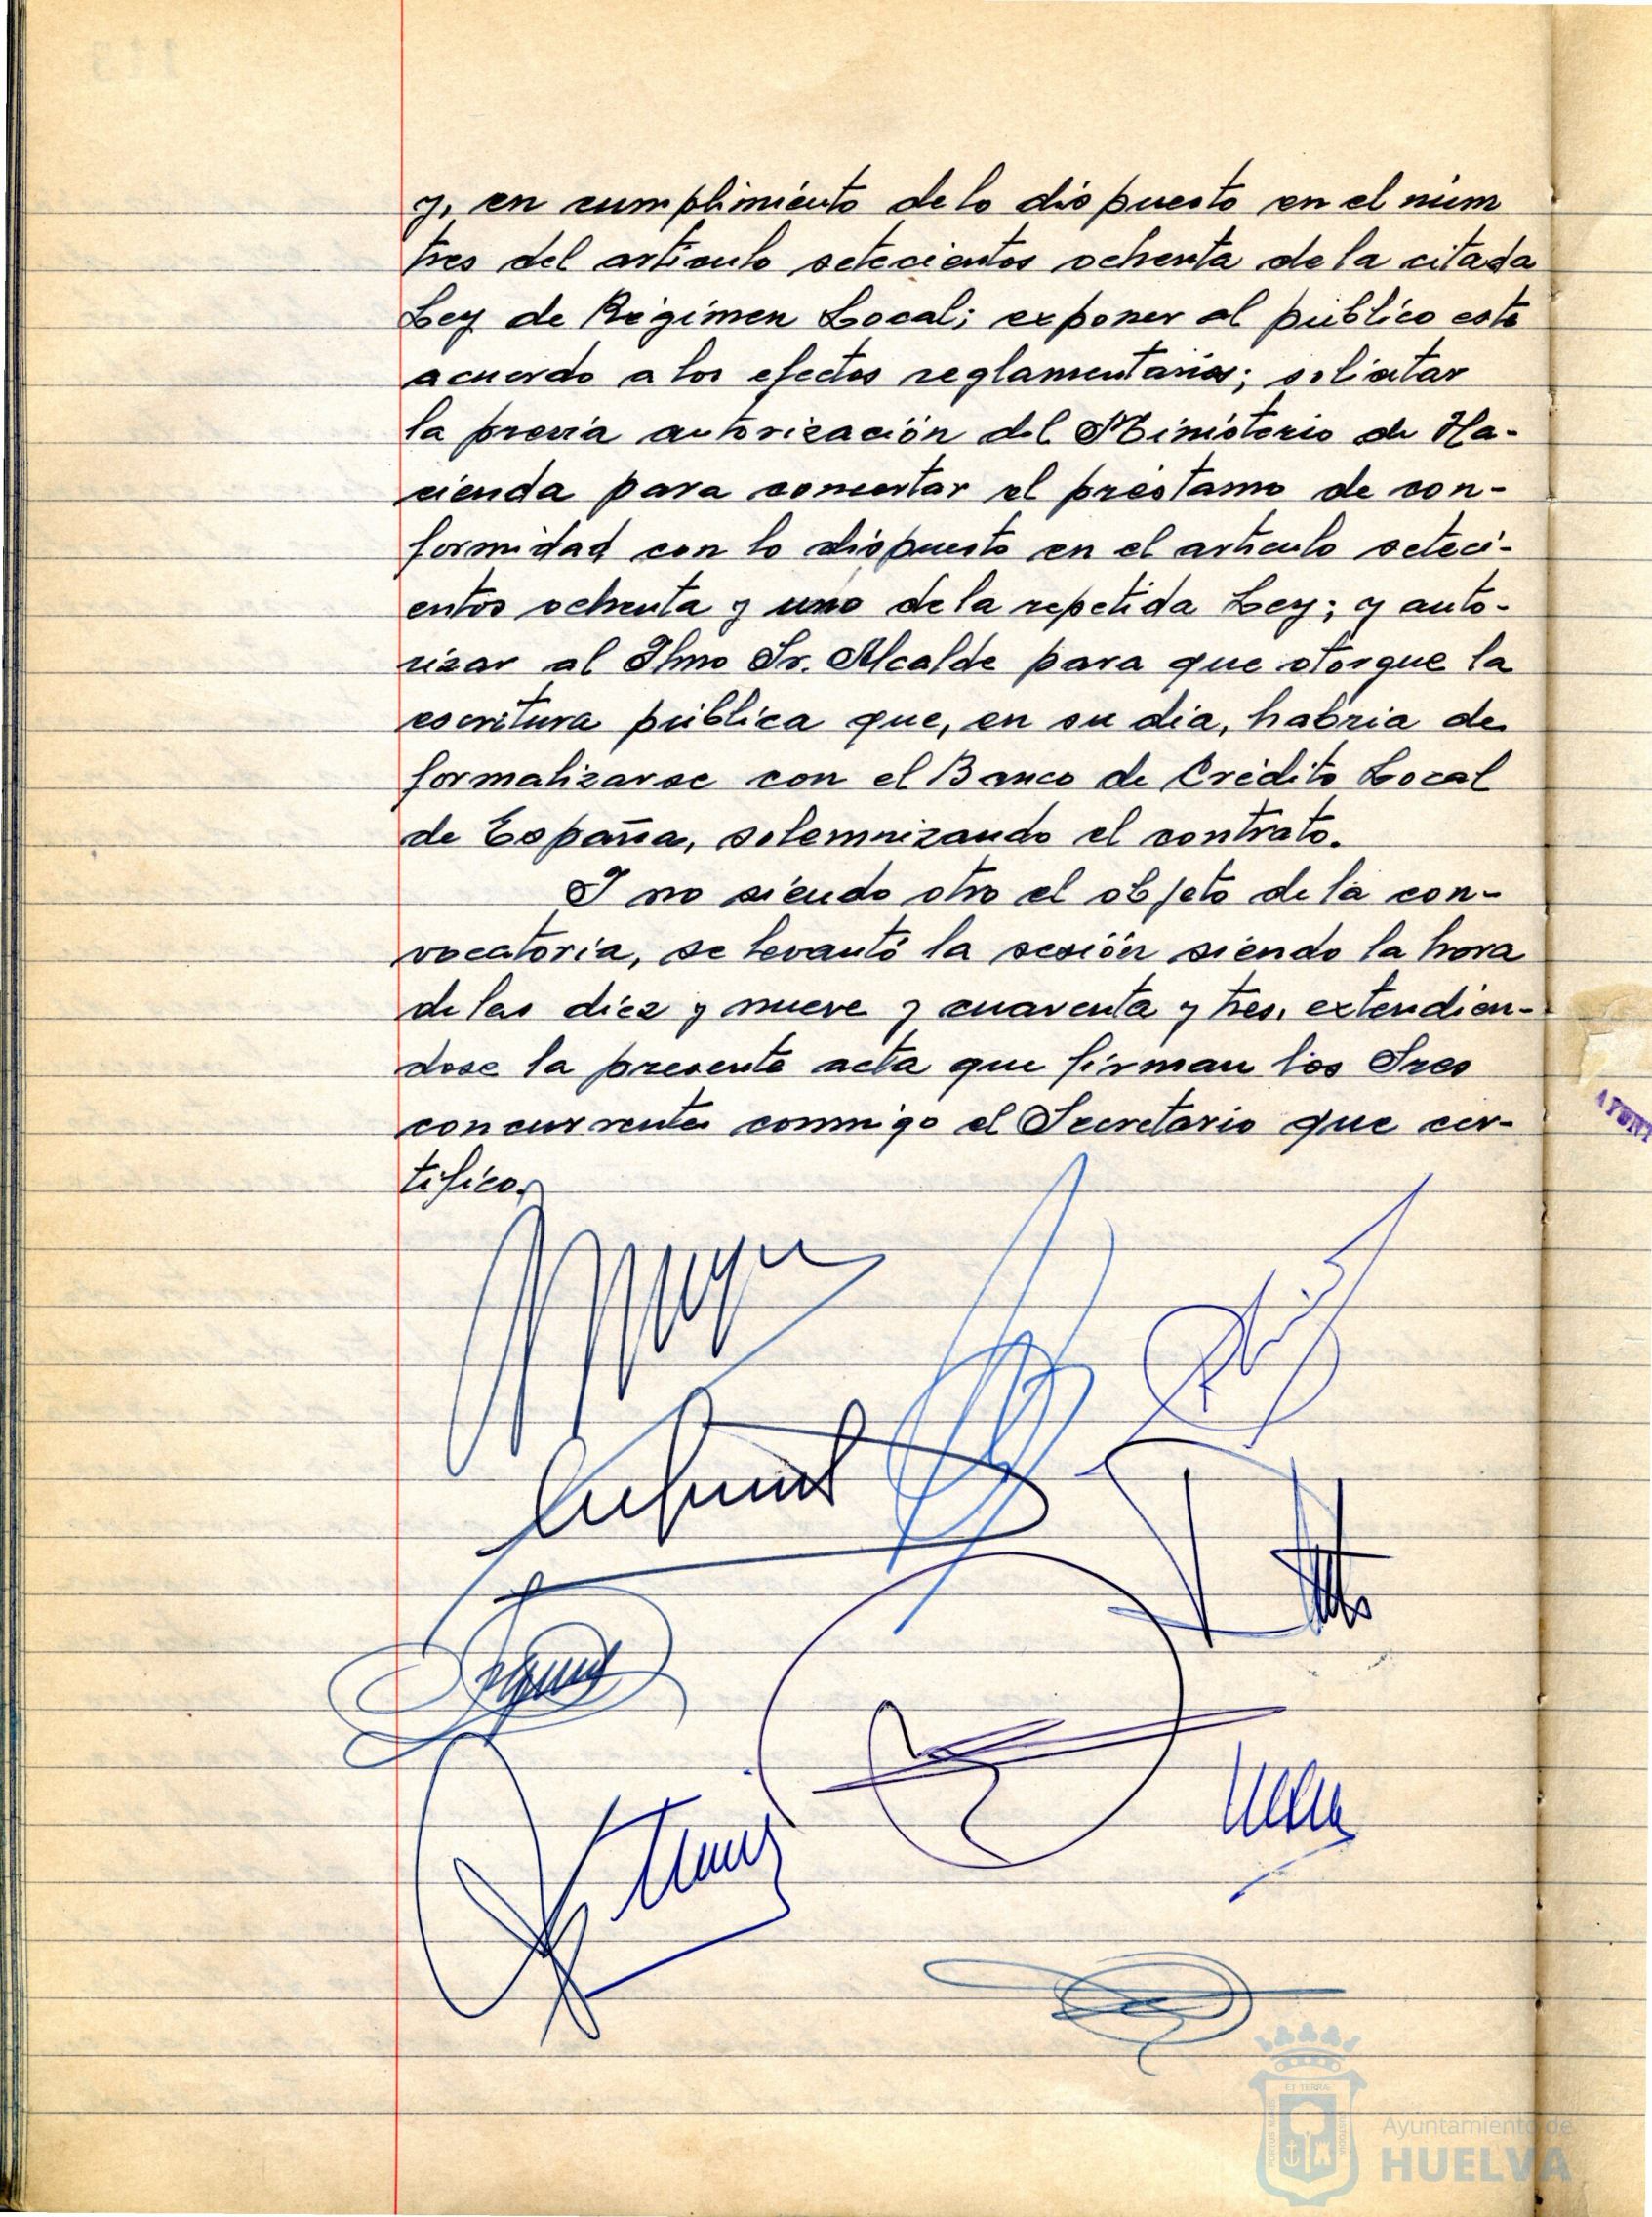 y, en cumplimiento de lo dispuesto en el núm
tres del artículo setecientos ochenta de la citada
Ley de Régimen Local; exponer al público este
acuerdo a los efectos reglamentarios; solicitar
la previa autorización del Ministerio de Ha-
cienda para concertar el préstamo de con-
formidad con lo dispuesto en el artículo seteci-
entos ochenta y uno de la repetida Ley; y auto-
rizar al Ilmo Sr. Alcalde para que otorgue la
escritura pública que, en su día, habría de
formalizarse con el Banco de Crédito Local
de España, solemnizando el contrato.
Y no siendo otro el objeto de la con-
vocatoria, se levantó la sesión siendo la hora
de las diez y nueve y cuarenta y tres, extendien-
dose la presente acta que firman los Sres
concurrentes conmigo el Secretario que cer-
tifico.
AYUNT
Ayuntamiento de
HUELVA